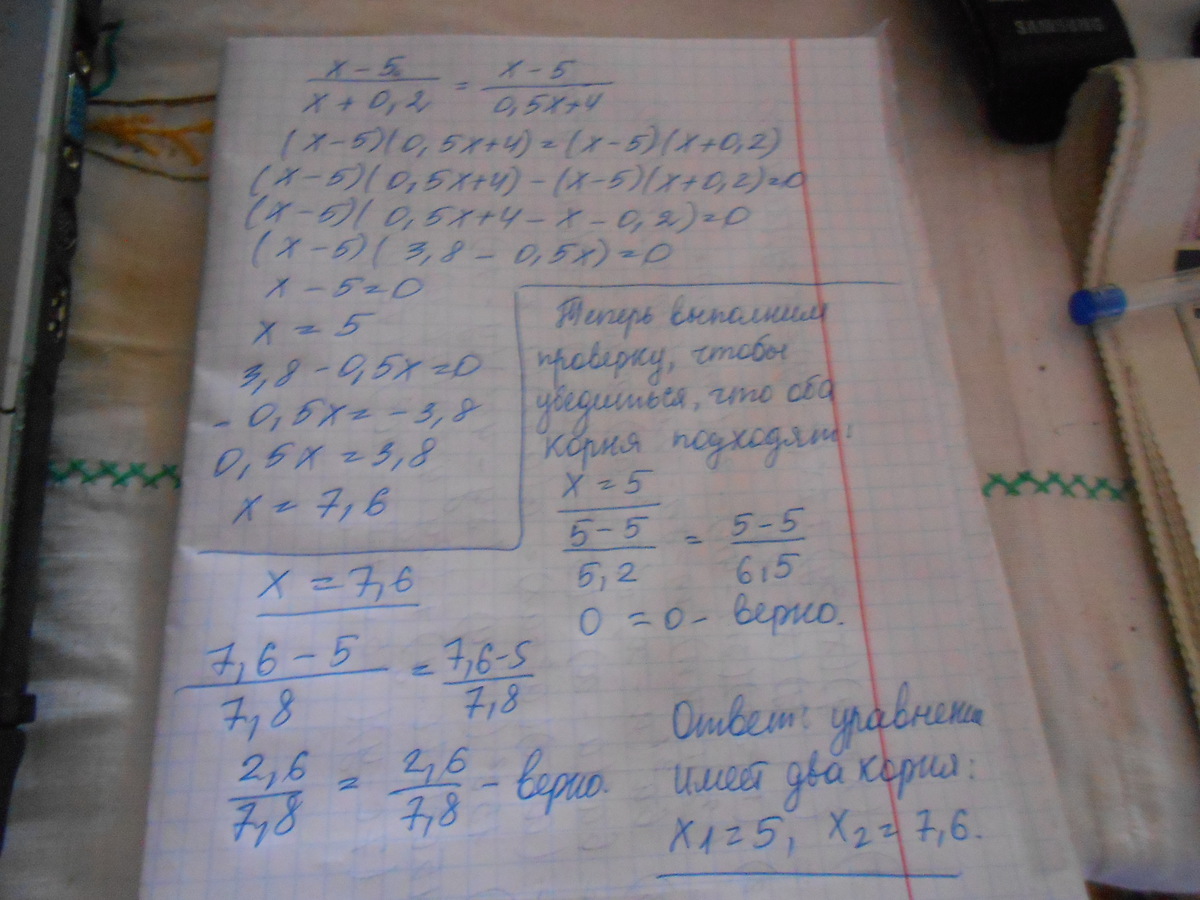 SAMSUNG
x - 5 / x + 0,2 = x - 5 / 0,5x+4
(x-5)(0,5x+4)=(x-5)(x+0,2)
(x-5)(0,5x+4)-(x-5)(x+0,2)=0
(x-5)(0,5x+4-x-0,2)=0
(x-5)(3,8-0,5x)=0
x-5=0
x=5
3,8-0,5x=0
-0,5x=-3,8
0,5x=3,8
x=7,6
Теперь выполним
проверку, чтобы
убедиться, что оба
корня подходят:
x=5
5-5 / 5,2 = 5-5 / 6,5
0 = 0 - верно.
x=7,6
7,6-5 / 7,8 = 7,6-5 / 7,8
2,6 / 7,8 = 2,6 / 7,8 - верно.
Ответ: уравнение
имеет два корня:
x1=5, x2=7,6.